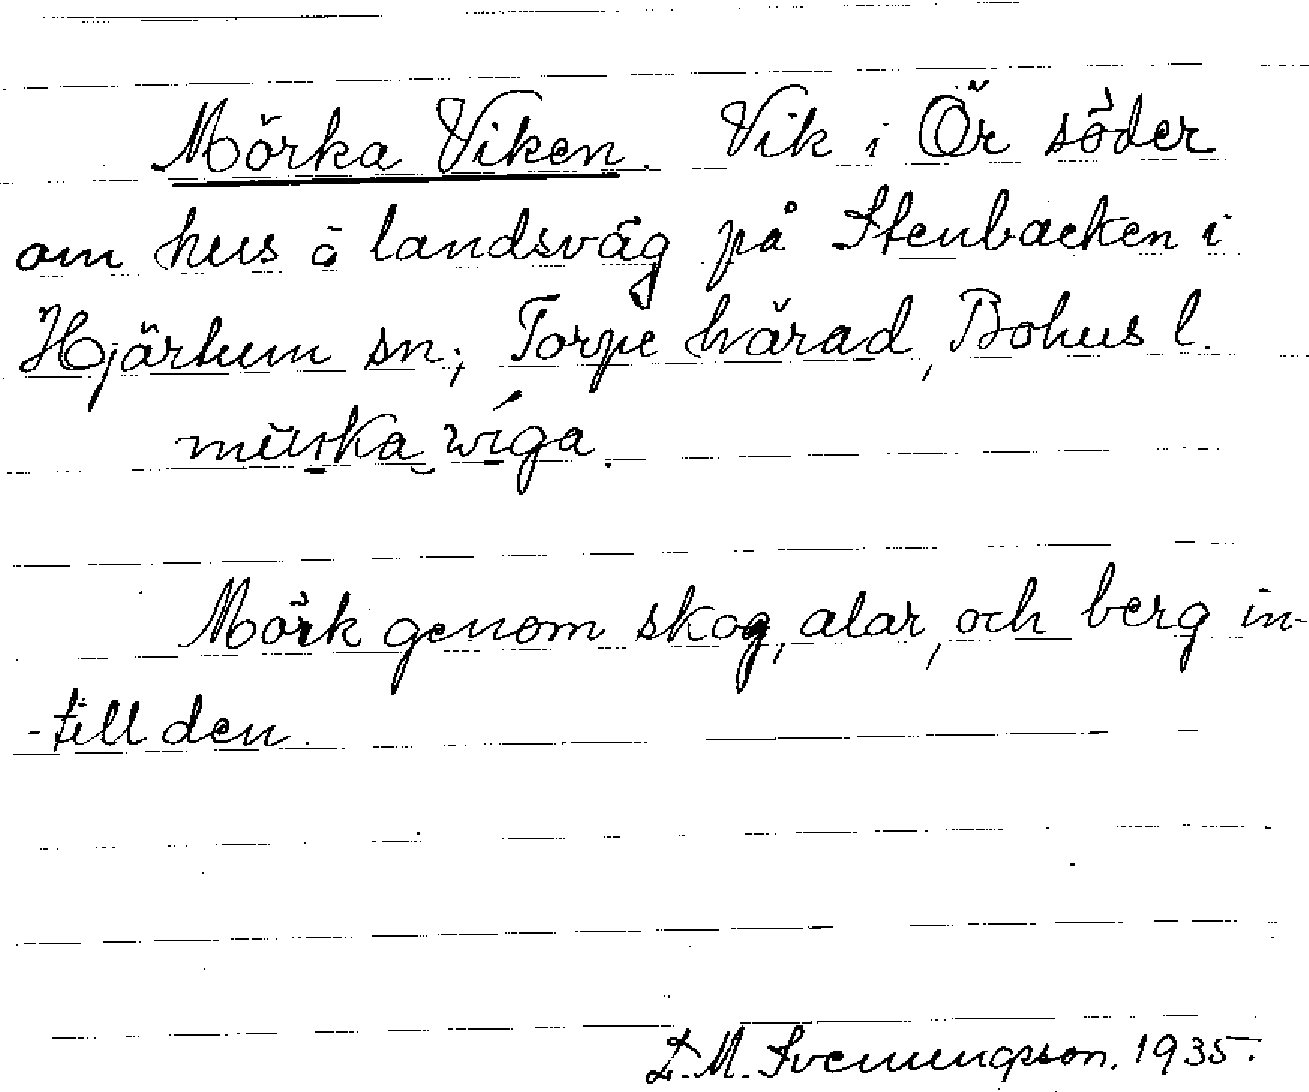 Mörka Viken. Vik i Ör söder
om hus å landsväg på Stenbacken i
Hjärtum sn; Torpe härad, Bohus l.
mürka wíga.
Mörk genom skog, alar, och berg in-
-till den.
L. M. Svenungsson. 1935.